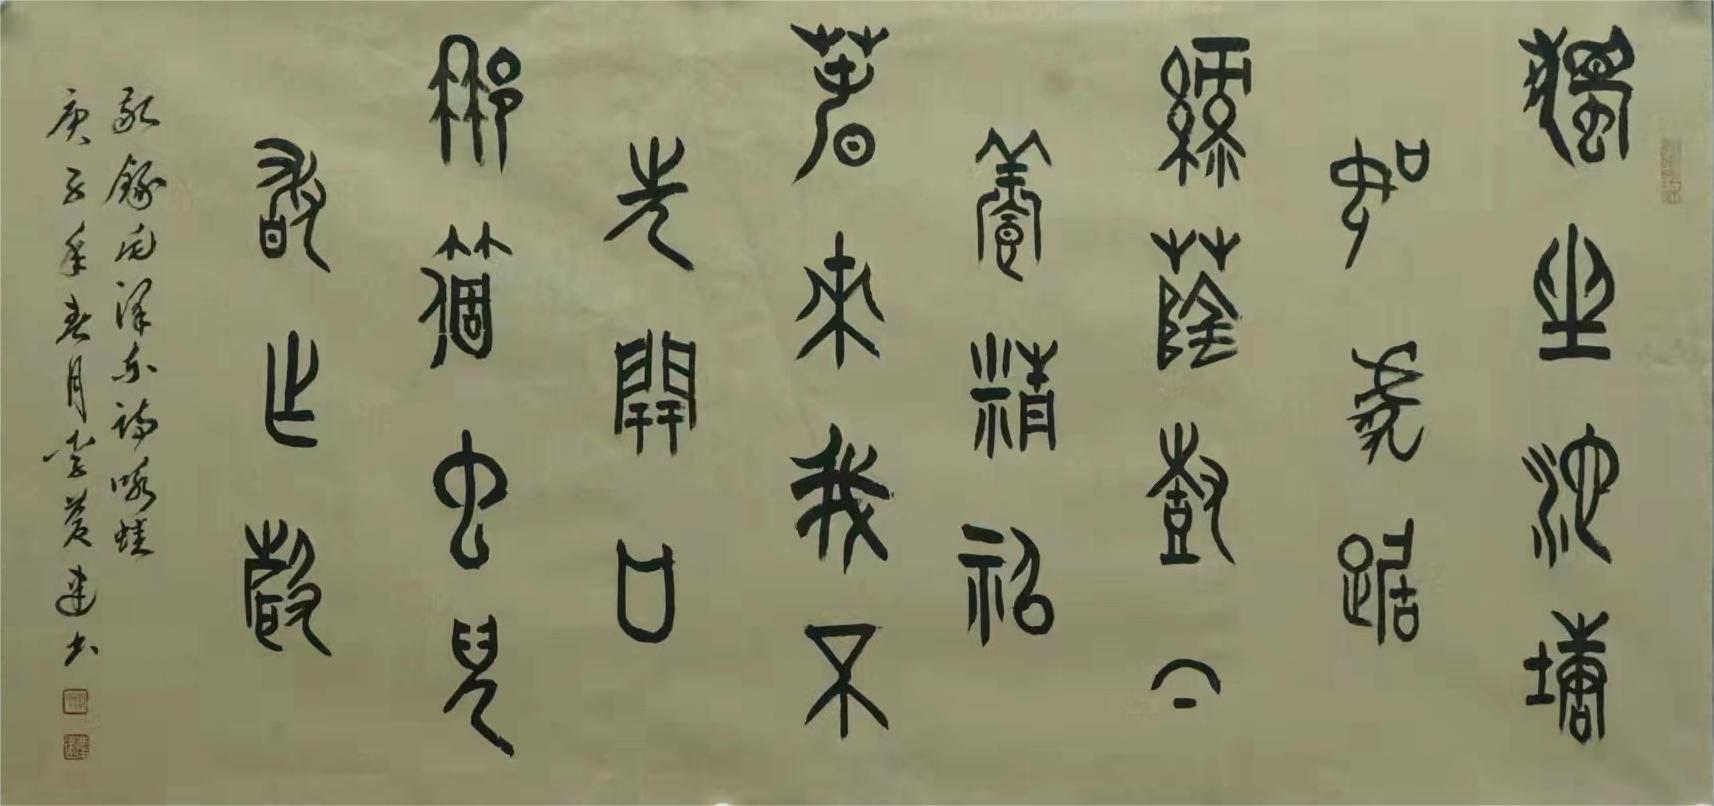 獨坐池塘
如虎踞
綠蔭樹下
養精神
春來我不
先開口
那箇虫兒
敢乍聲
敬錄毛澤東詩咏蛙
庚子年春月李建书